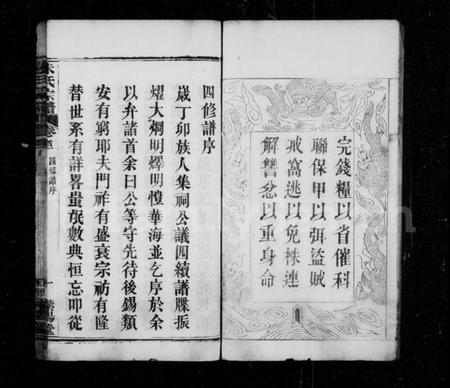 完錢糧以省催科
聯保甲以弭盜賊
戒窩逃以免株連
解讐忿以重身命
四修譜序
歲丁卯族人集祠公議四續譜牒振
燿大烱明燡明愷華海並乞序於余
以弁諸首余曰公等守先待後錫類
安有窮耶夫門祚有盛衰宗祊有隆
替世系有詳畧蚩氓數典恒忘叩從
宗譜
卷首
四修譜序
堂